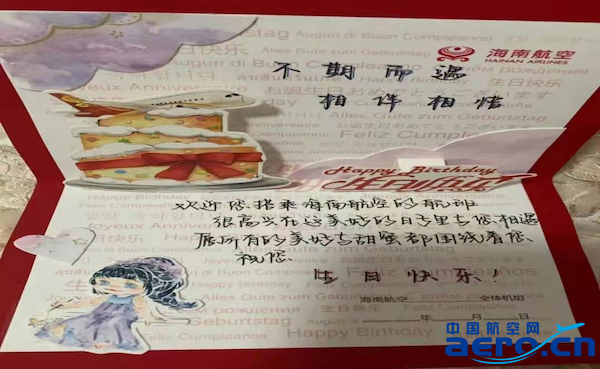 海南航空
HAINAN AIRLINES
不期而遇
相伴相惜
Happy Birthday
生日快乐
欢迎您搭乘海南航空的航班
很高兴在这美好的日子里与您相遇
愿所有的美好与甜蜜都围绕着您
祝您
生日快乐！
海南航空 全体机组
年 月 日
中国航空网
aero.cn